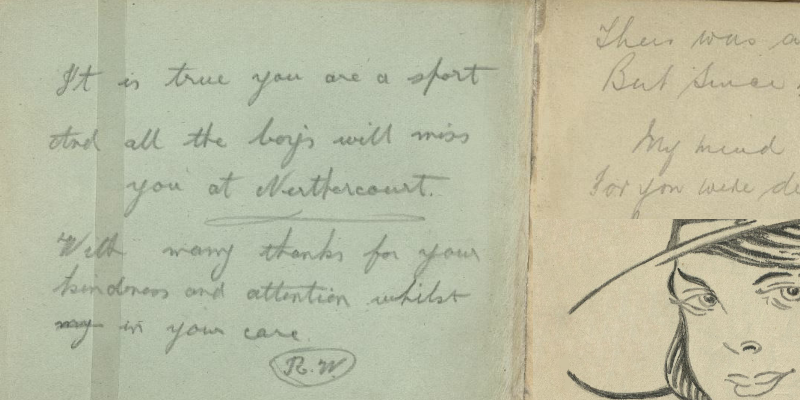 It is true you are a sport
And all the boy's will miss
you at Nerthercourt.
With many thanks for your
kindness and attention whilst
my in your care.
R.W
Their was a
But Since
My mind
For you were de